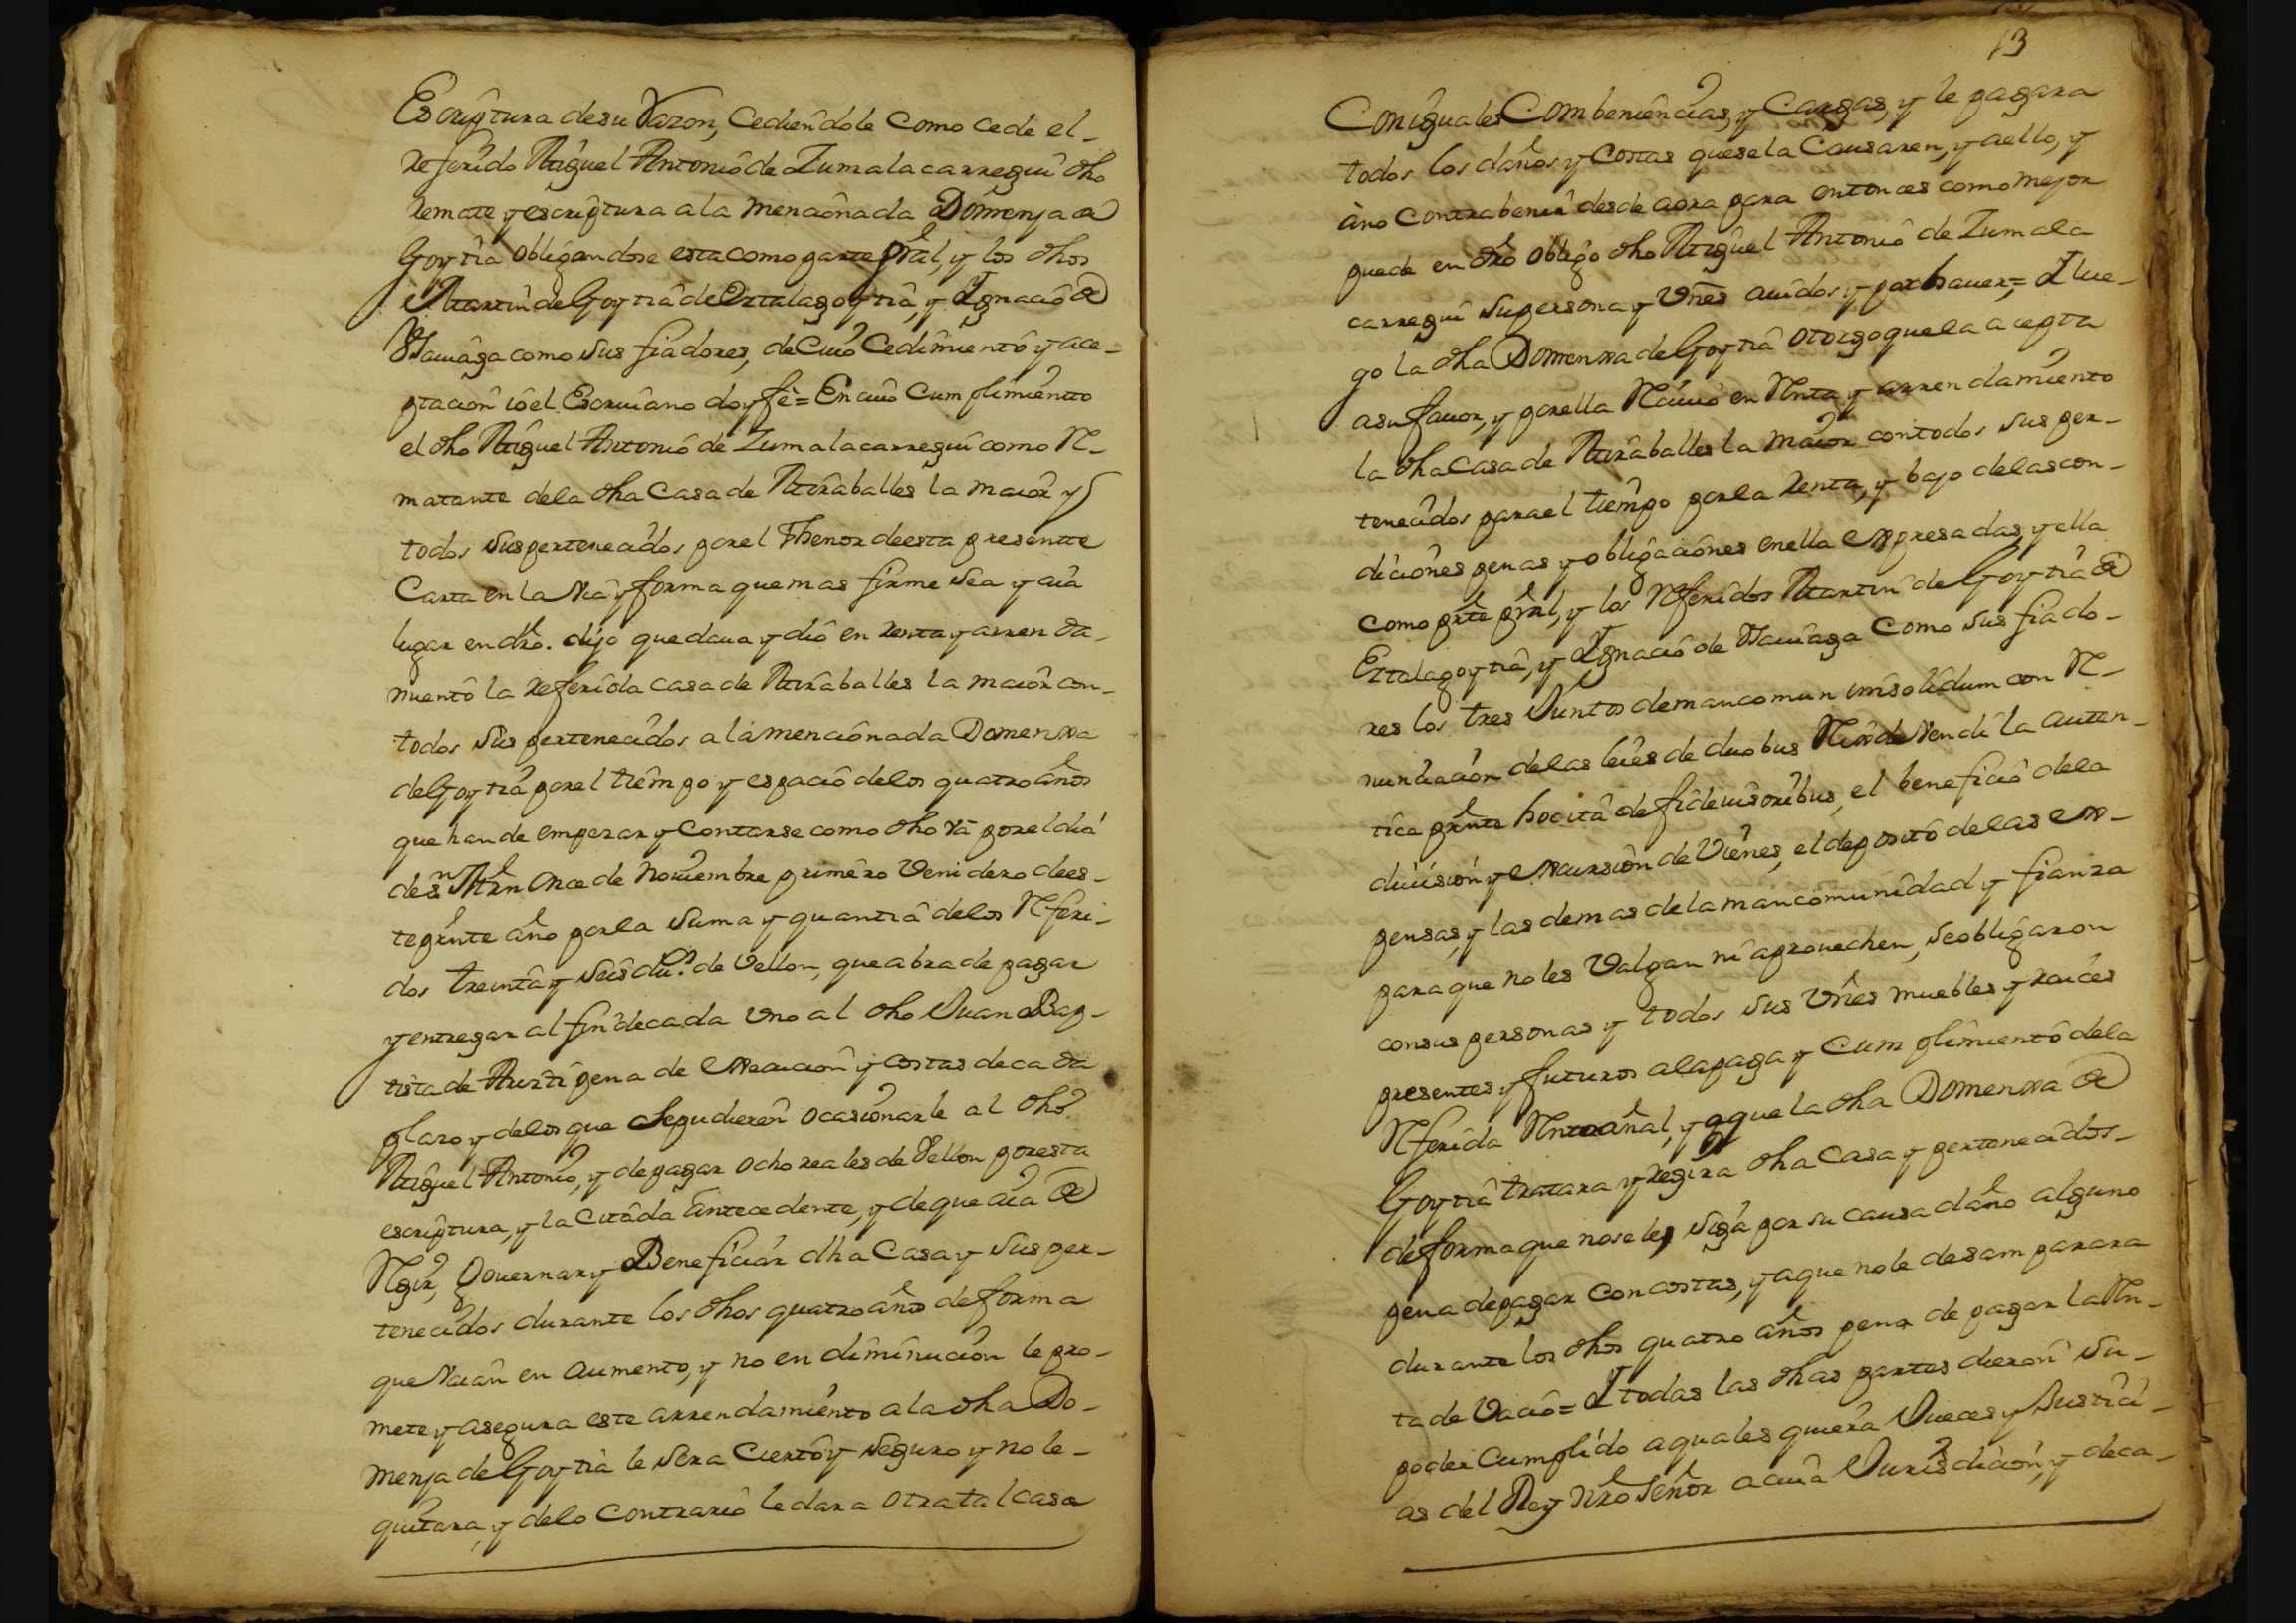 Escriptura de su Razon, Cediendole como cede el-
referido Miguel Antonio de Zumalacarregui dho
remate y escriptura a la mencionada Domenja de
Goytia obligandose esta como parte prâl, y los dhos
Martin de Goytia de Ertalagoytia, y Ygnacio de
como sus fiadores, de cuio Cedimiento y ace-
ptacion io el Escriuano doy fe = En cuio Cumplimientto
el dho Miguel Antonio de Zumalacarregui como Re-
matante de la dha Casa de Miraballes la maior y
todos sus pertenecidos por el Thenor de esta presentte
Carta en la via y forma que mas firme sea y aia
lugar en dro. dijo que daua y dio en renta y arrenda-
miento la referida casa de Miraballes la maior con-
todos sus pertenecidos a la mencionada Domenxa
de Goytia por el tiempo y espacio de los quatro años
que han de empezar y contarse como dho va por el dia
de Sn Mrn Once de Nouiembre primero venidero de es-
te prnte año por la suma y quantia de los Referi-
dos treinta y seis dus. de vellon, que abra de pagar
y entregar al fin de cada vno al dho Juan Bap-
tista de pena de execucion y costas de cada
plazo y de los que se pudieren ocasionarle al dho
Miguel Antonio, y de pagar ocho reales de Vellon por esta
escriptura, y la Citada antecedente, y de que aia de
Regir, Gouernar y Beneficiar dha Casa y sus per-
tenecidos durante los dhos quatro años de forma
que vaian en aumento, y no en diminucion le pro-
mete y asegura este arrendamiento a la dha Do-
menja de Goytia le sera Cierto y seguro y no le-
quitara, y de lo Contrario le dara otra tal casa
13
Con iguales Combeniencias, y Cargas, y le pagara
todos los daños y costas que se la Causaren, y a ello, y
a no contrabenir desde aora para entonces como mejor
puede en dro obligo dho Miguel Antonio de Zumala
carregui su persona y vnes auidos y por hauer = Y lue-
go la dha Domenxa de Goytia otorgo que la acepta
a su fauor, y por ella Reciuio en Renta y arrendamiento
la dha Casa de Miraballes la maior con todos sus per-
tenecidos para el tiempo por la renta, y bajo de las con-
diciones penas y obligaciones en ella expresadas, y ella
como prte prâl, y los Referidos Martin de Goytia de
Ertalagoytia, y Ygnacio de como sus fiado-
res los tres Juntos de mancomun innsolidum con Re-
nunciacion de las leies de duobus Reis devendi la auten-
tica prnte hoc ita de fideiusoribus, el beneficio de la
diuision y excursion de Vienes, el deposito de las ex-
pensas, y las demas de la mancomunidad y fianza
para que no les valgan ni aprouechen, se obligaron
con sus personas y todos sus vnes muebles y raices
presentes y futuros a la paga y Cumplimiento de la
Referida Renta añal, y a que la dha Domenxa de
Goytia tratara y regira dha Casa y pertenecidos-
de forma que no se les siga por su causa daño alguno
pena de pagar con costas, y a que no le desamparara
durante los dhos quatro años pena de pagar la Ren-
ta de Vacio = Y todas las dhas partes dieron su-
poder Cumplido a quales quiera Jueces y Justici-
as del Rey nro Señor a cuia Jurisdicion, y de ca-